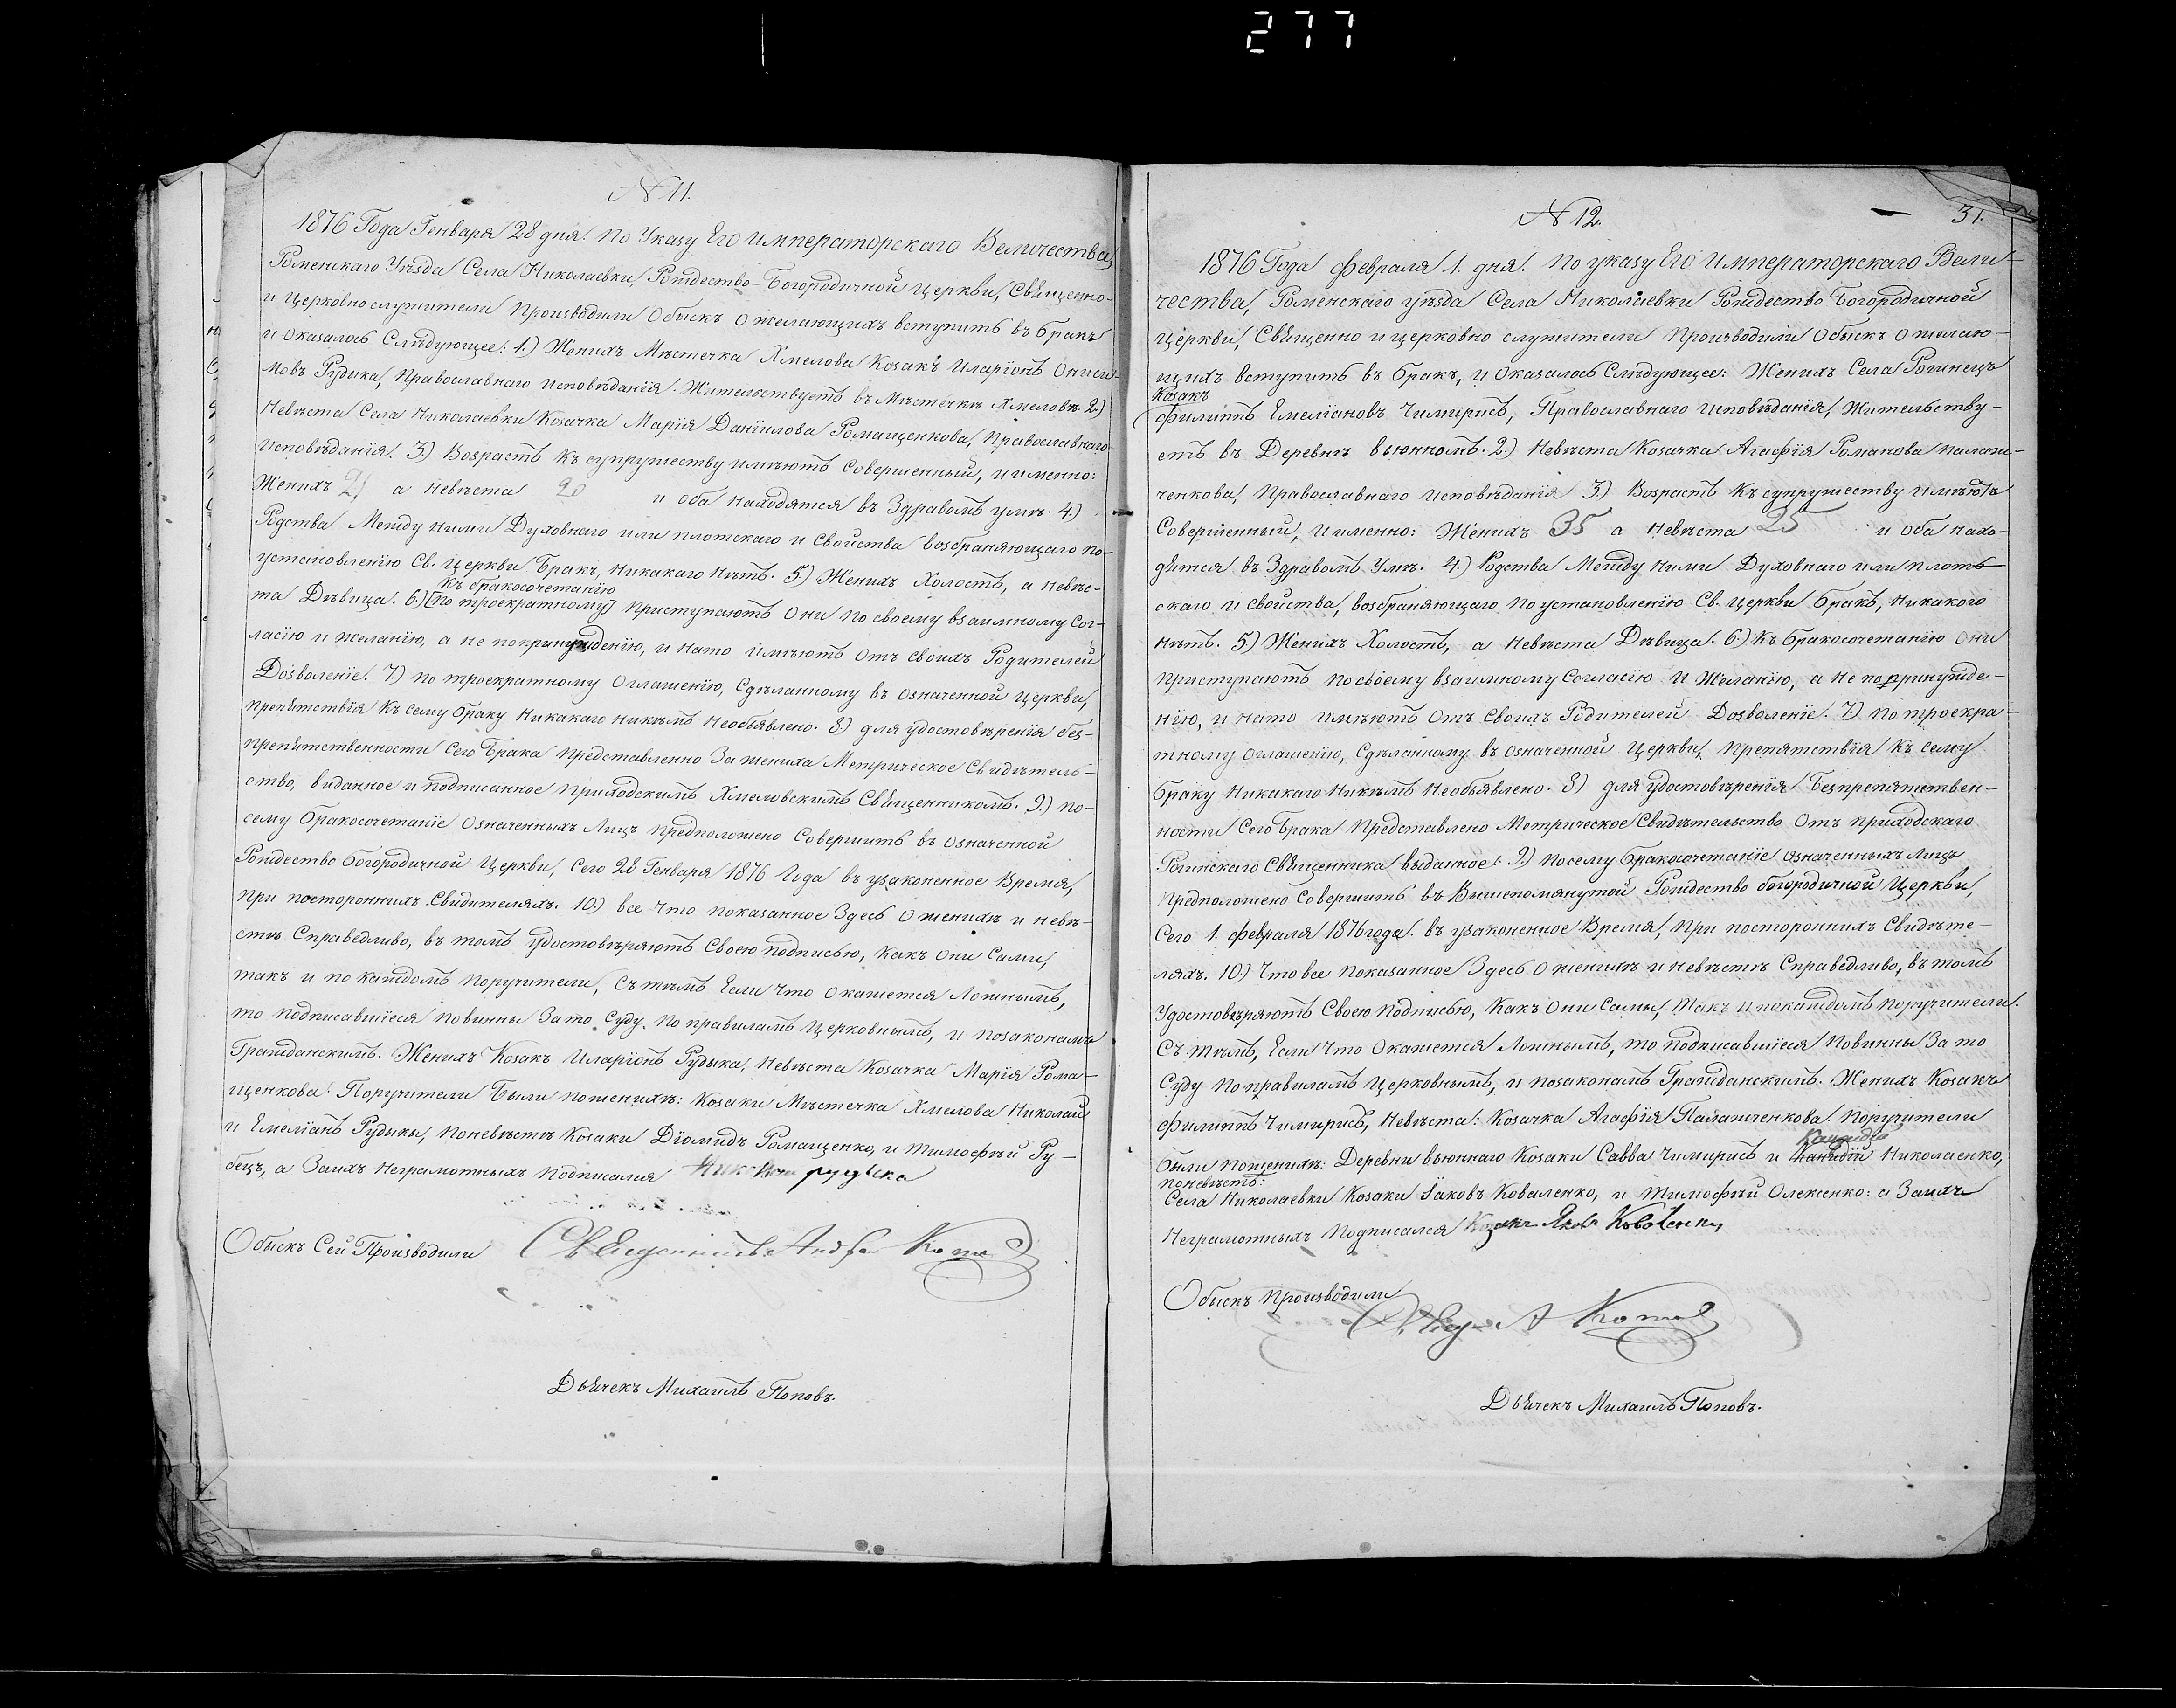 277
N 11.
1876 Года Генваря 28 дня. По Указу Его Императорскаго Величества,
Роменскаго Уѣзда Села Николаевки, Рождество-Богородичной Церкви, Священно-
и Церковно служители Производили Обыскъ о желающихъ вступить въ бракъ
и Оказалось Слѣдующее: 1.) Женихъ Мѣстечка Хмелова Козакъ Иларіонъ Ониси-
мовъ Рудыка, Православнаго Исповѣданія. Жительствуетъ въ Мѣстечкѣ Хмеловѣ. 2.)
Невѣста Села Николаевки Козачка Марія Даніилова Ромащенкова, Православнаго
Исповѣданія. 3.) Возрастъ къ супружеству имѣютъ Совершенный, и именно:
Женихъ 21 а Невѣста 20 и оба находятся въ Здравомъ умѣ. 4.)
Родства Между ними Духовнаго или плотскаго и Свойства возбраняющаго по-
установленію Св. Церкви Бракъ, Никакаго Нѣтъ. 5.) Женихъ Холостъ, а невѣс-
къ бракосочетанію
та Дѣвица. 6.) (по троекратному) Приступаютъ Они по своему взаимному Сог-
ласію и желанію, а не по принужденію, и на то имѣютъ Отъ своихъ Родителей
Дозволеніе. 7.) по троекратному Оглашенію, Сдѣланному въ Означенной Церкви,
препятствія къ сему браку Никакаго никѣмъ Необъявлено. 8.) для удостовѣренія без-
препятственности Сего Брака Представленно За жениха Метрическое Свидѣтель-
ство, виданное и подписанное приходскимъ Хмеловскимъ Священникомъ. 9.) по-
сему бракосочетаніе Означенныхъ Лицъ предположено Совершить въ Означенной
Рождество Богородичной Церкви, Сего 28 Генваря 1876 Года въ узаконенное Время,
При постороннихъ Свидителяхъ. 10.) все что показанное Здесь О женихѣ и невѣ-
стѣ Справедливо, въ томъ удостовѣряютъ Своею подписью, Какъ они Сами,
такъ и по каждомъ поручители, Съ тѣмъ Если что окажется Ложнымъ,
то подписавшіеся повинны За то Суду по правиламъ Церковнымъ, и по законамъ
Гражданскимъ. Женихъ Козакъ Иларіонъ Рудыка, Невѣста Козачка Марія Рома-
щенкова. Поручители Были по женихѣ: Козаки Мѣстечка Хмелова Николай
и Емеліанъ Рудыки, по невѣстѣ Козаки Діомидъ Ромащенко, и Тимофѣй Ру-
бецъ, а За ихъ Неграмотныхъ Подписался рудыка
Обыскъ Сей Производили Священникъ Андрей
Дьячекъ Михаилъ Поповъ.
N 12.
31.
1876 Года Февраля 1. дня. По указу Его Императорскаго Вели-
чества, Роменскаго уѣзда Села Николаевки Рождество Богородичной
Церкви, Священно и церковно служители Производили Обыскъ О желаю-
щихъ вступить въ бракъ, и Оказалось Слѣдующее: Женихъ Села Рогинецъ
Козакъ
Филиппъ Емеліановъ Чимирисъ, Православнаго Исповѣданія, Жительству-
етъ въ Деревнѣ вьюнномъ. 2.) Невѣста Козачка Агафія Романова Палаш-
ченкова, Православнаго Исповѣданія 3.) Возрастъ къ супружеству имѣютъ
Совершенный, и именно: Женихъ 35 а Невѣста 25 и Оба нахо-
дятся въ Здравомъ Умѣ. 4.) Родства Между ними Духовнаго или плоть-
скаго и свойства, возбраняющаго по установленію Св. Церкви бракъ, Никакого
Нѣтъ. 5.) Женихъ Холостъ, а Невѣста Дѣвица. 6.) Къ бракосочетанію Они
Приступаютъ по своему взаимному Согласію и Желанію, а Не по принужде-
нію, и на то имѣютъ Отъ Своихъ Родителей Дозволеніе. 7.) По троекра-
тному Оглашенію, Сдѣланному въ Означенной Церкви, Препятствія къ Сему
браку Никакаго Никѣмъ Необъявлено. 8.) для удостовѣренія Безпрепятствен-
ности Сего Брака Представлено Метрическое Свидѣтельство Отъ приходскаго
Рогинскаго Священника выданное. 9.) По сему бракосочетаніе Означенныхъ Лицъ
Предположено Совершить въ Вышепомянутой Рождество богородичной Церкви,
Сего 1. Февраля 1876 года. въ узаконенное Время, При постороннихъ Свидѣте-
ляхъ. 10.) Что все показанное Здесь О женихѣ и невѣстѣ Справедливо, въ томъ
Удостовѣряютъ Своею Подписью, Какъ Они Самы, Такъ и по каждомъ поручители.
Съ тѣмъ, Если Что Окажется Ложнымъ, то подписавшіеся Повинны За то
Суду по правиламъ Церковнымъ, и по законамъ Гражданскимъ. Женихъ Козакъ
Филиппъ Чимирисъ, Невѣста: Козачка Агафія Палашченкова. Поручители
были по женихѣ: Деревни вьюннаго Козаки Савва Чимирисъ и Николаенко,
по невѣстѣ:
Села Николаевки Козаки Іаковъ Коваленко, и Тимофѣй Олексенко: а За ихъ
Неграмотныхъ Подписался Козакъ Яковъ Коваленко,
Обыскъ Производили
Дьячекъ Михаилъ Поповъ.